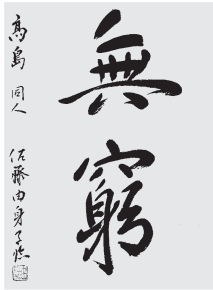 無窮
高島 同人 佐藤由身子臨